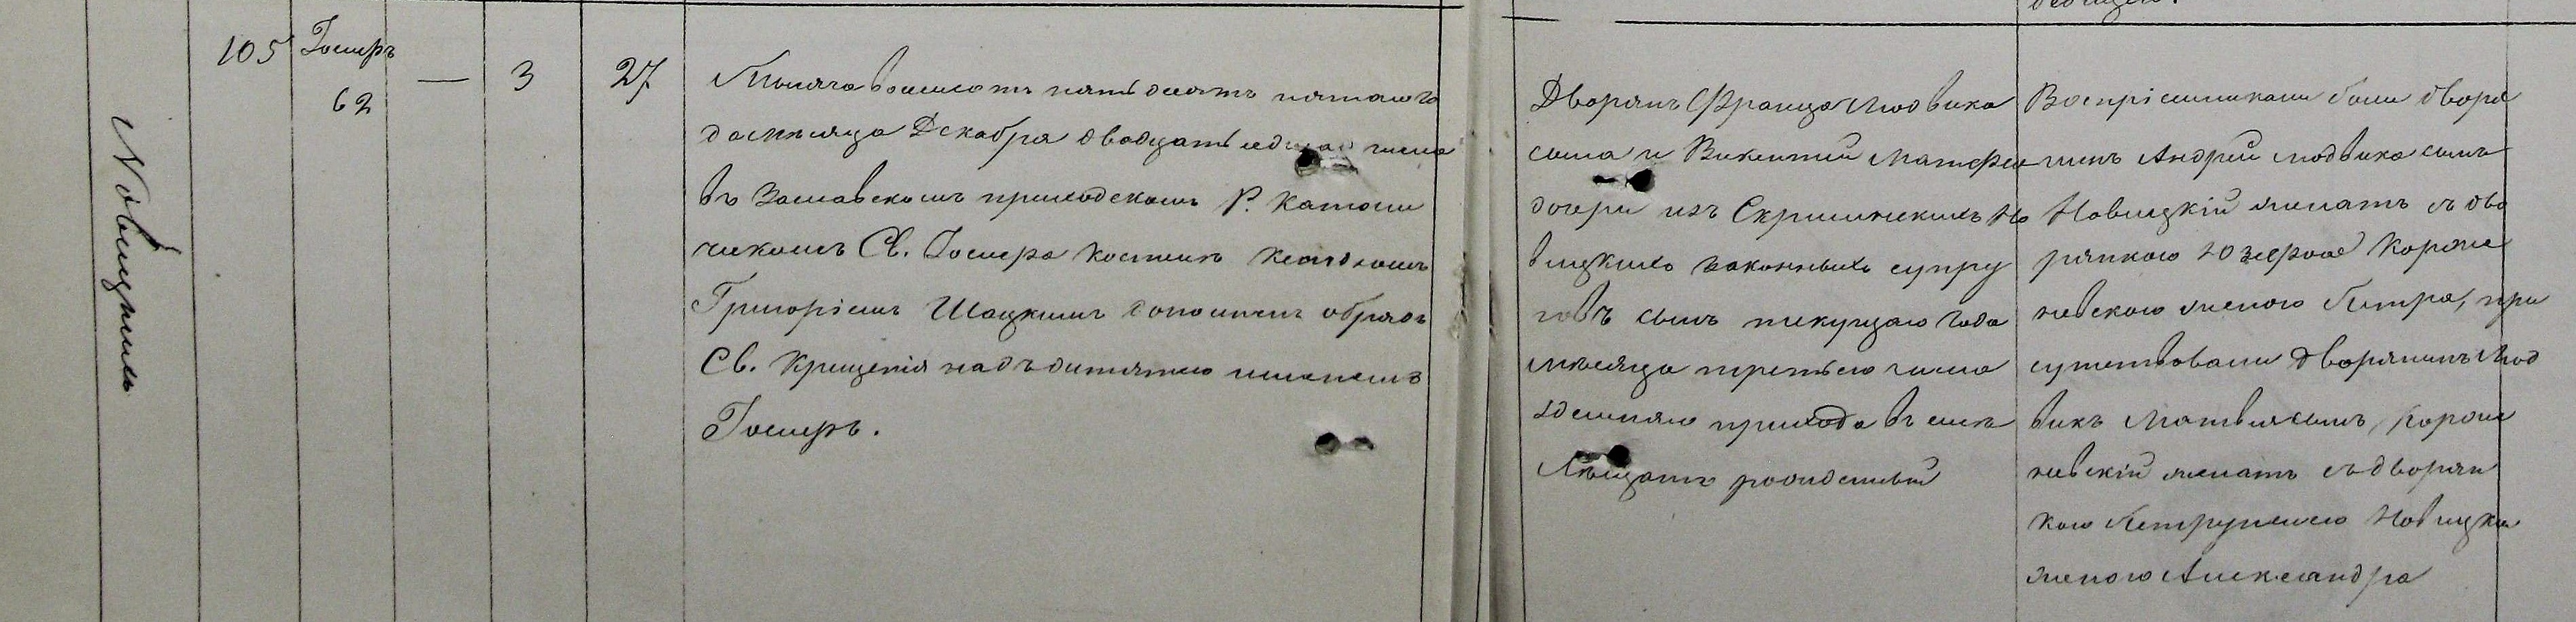 Новицкихъ
105
Іосифъ
62
—
3
27
Тысяча восемсотъ пятьдесятъ пятаго го
да мѣсяца Декабря двадцать седмаго числа
въ Заславскомъ приходскомъ Р. Католи
ческомъ Св. Іосифа костелѣ Ксендзомъ
Григоріемъ Шацкимъ дополненъ обрядъ
Св. Крещенія надъ дитятею именемъ
Іосифъ.
Дворянъ Франца Людвика
сына и Викентіи Матфея
дочери изъ Скришинскихъ Но
вицкихъ законныхъ супру
говъ сынъ текущаго года
мѣсяца третьего числа
здешняго прихода въ
рожденный
Воспріемниками были дворя
нинъ Андрей Людвика сынъ
Новицкій женатъ съ дво
рянкою Юзефою Короле
невскою женою Петра, при
сутствовали Дворянинъ Люд
викъ Матвѣя сынъ
невскій женатъ съ дворян
кою Новицкою
женою Александра